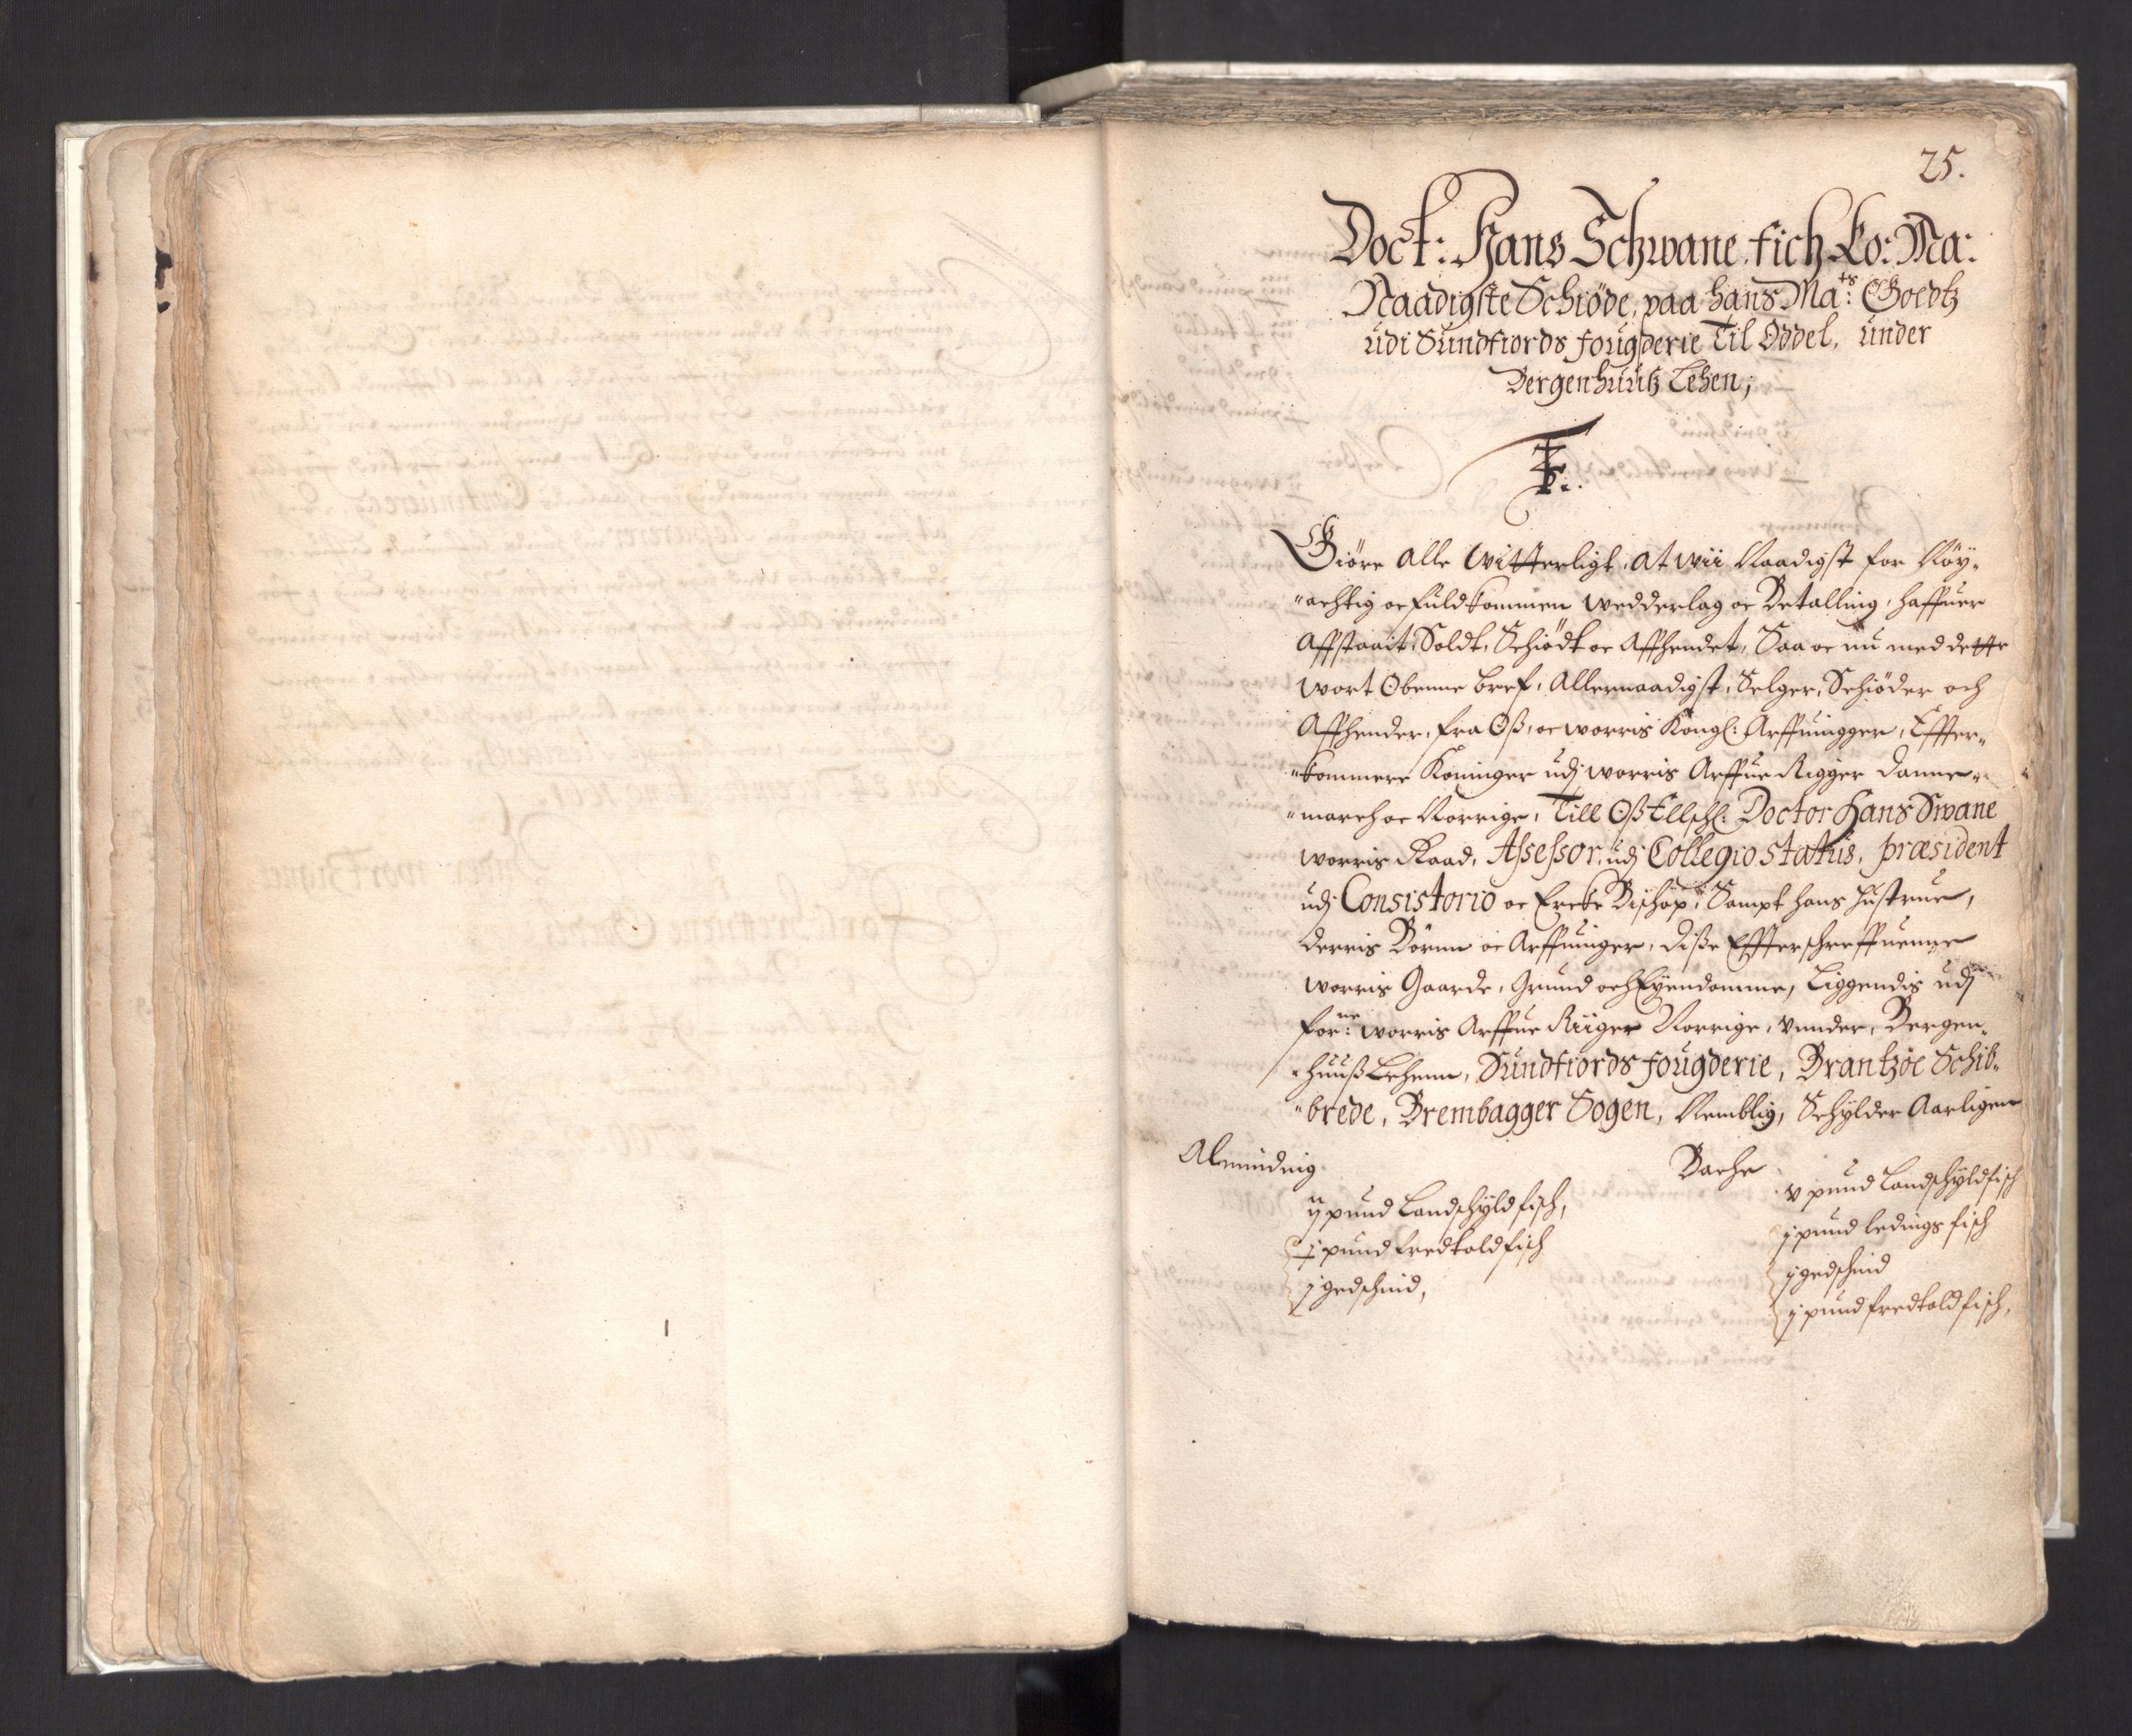 25.
Doct: Hans Schwane, fich Ko: Ma:
Naadigste Schiøde, paa hans Ma^ts: Goedtz
udi Sundfiords fougderie Til Oddel, under
Bergenhuutz Lehen;
F
Giöre alle witterligt, at wii Naadigst for Nöy„
„achtig oc fuldkommen wedderlag oc Betalling, haffuer
Affstaait, Soldt, Schiødt oc Affhendet, Saa oc nu med dette
wort Obenne bref, Allernaadigst, Selger, Schiøder och
Affhender, fra Oß, oc worris Kongl: Arffuingger, Effter„
„kommere Koninger udj worris Arffue Rigger Danne„
„march oc Norrige, Till Oß Ellschl: Doctor Hans Swane
worris Raad, Assessor, udj Collegio Status, præsident
udj Consistorio oc Ercke Bischop, Sampt hans Hustrue,
derris Börnn oc Arffuinger, diße Effterschreffuenne
worris Gaarde, Grund och Eyendomme, Liggendis udj
for^ne: worris Arffue Riiger Norrige, vunder, Bergen„
„huuß Lehenn, Sundfiords fougderie, Brantzøe Schib„
„brede, Brembagger Sogen, Nemblig, Schylder Aarligen
Alminding
ij pund Landschyld fisch,
j pund fredtold fisch
j gedschind,
Bache
v pund Landschyld fisch
j pund ledings fisch
ij gedschind
j pund fredtold fisch,